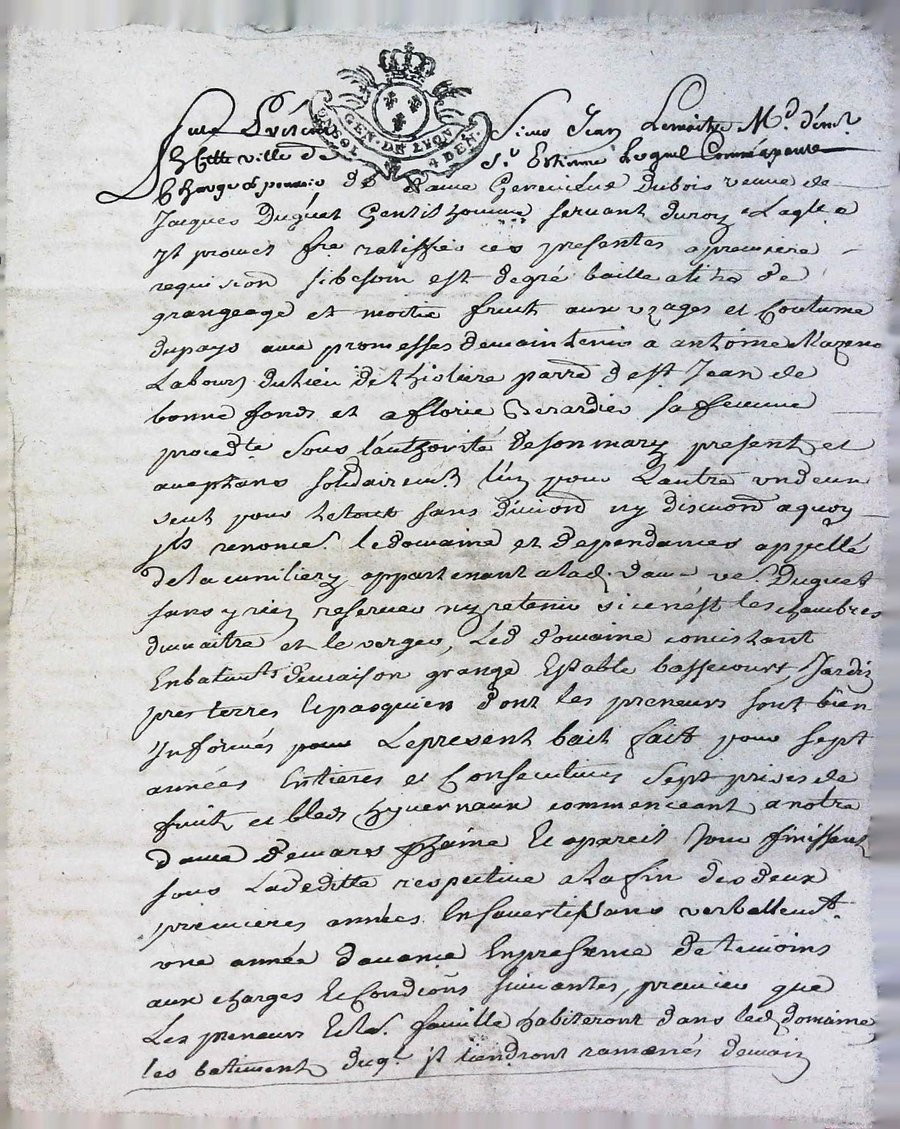 GEN. DE LYON
4 DEN.
fut Présent Sieur Jean Lemaitre Md. demt.
cette ville de St Estienne lequel Comme ayant
Charge de Dame Genevieve Dubois veuve de
Jacques Duguet Gentilhomme servant du roy
yt promet fre ratiffier ces presentes a premiere
requision sibesoin est degré baille atitre de
grangeage et moitie fruit aux uzages et Coutume
dupays aux promesses demaintenir a antoine Mazeno
Labourr. dulieu de thioliere parre. dest. Jean de
bonne fonds et a florie Berardier sa femme
procedte sous l'authorité deson mary present et
aceptans solidairemt. l'un pour Lautre un deux
seul pour letout sans division ny discution aquoy
jls renonct. ledomaine et dependances appellé
dela appartenant alad. dame ve. Duguet
sans y rien reserver ny retenir sicenest les chambres
dumaitre et le verger, Led domaine concistant
Enbatimts. demaison grange Estable bassecourt, Jardin
pres terres et pasquier dont les preneurs sont bien
Informés pour Lepresent bail fait pour sept
années Entieres et Consecutives sept prises de
fruit et bleds hyvernaux commenceant a notre
dame demars phaine et apareil Jour finissant
sous Ladeditte respective ala fin desdeux
premieres années Ensavertissans verballemt.
une année davance Enpresence detemoins
aux charges et Condiõns suivantes, premier que
Les preneurs famille habiteront dans led. domaine
les batiment duql. jls tiendront ramenés demain